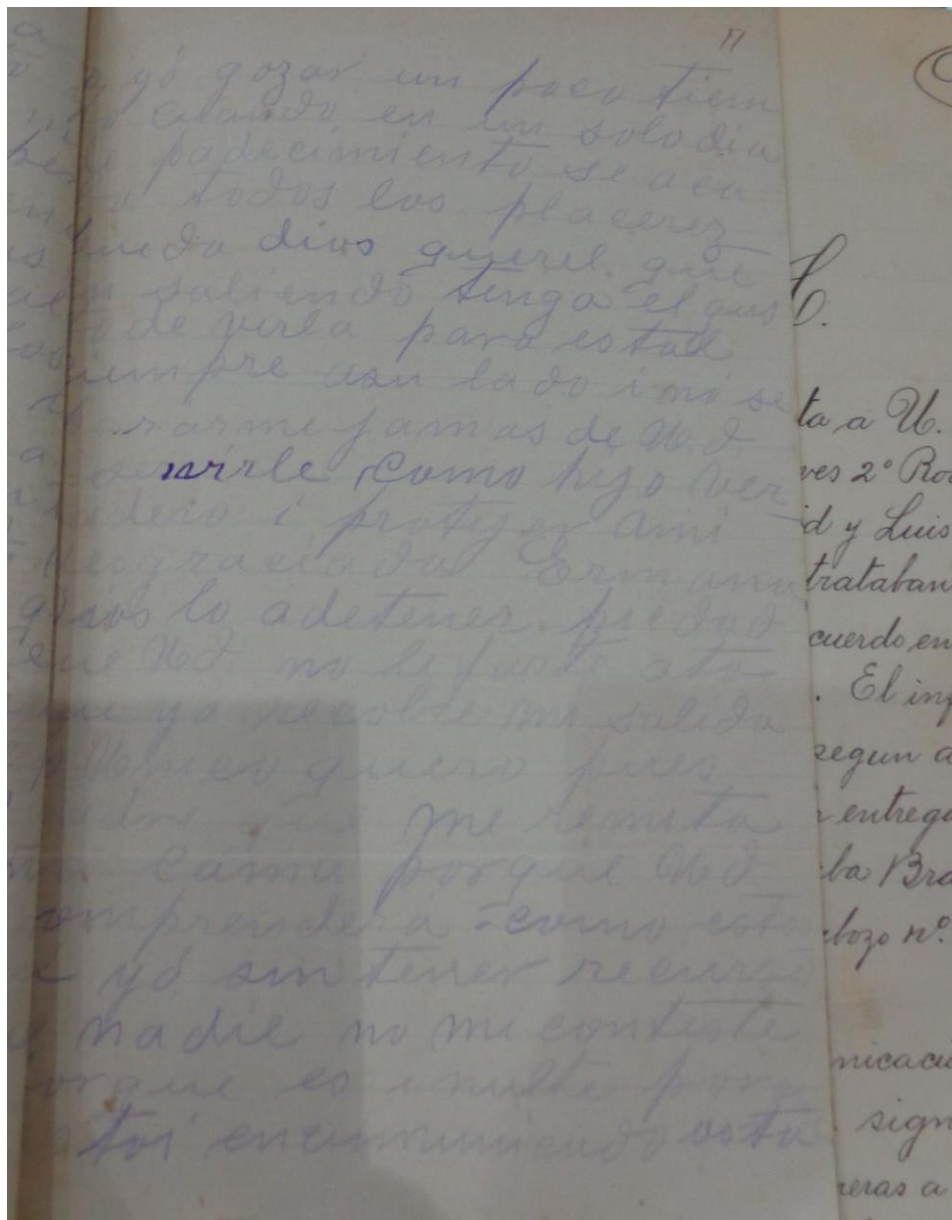 17
yó gozar un poco tiem
cuando en un solo dia
padecimiento se aca
todos los placerez
pueda dios querel que
saliendo tenga el gus
to de verla para estal
siempre asu lado i no se
pararme jamas de Ud.
servirle como hijo ver
dadero i protejer ami
desgraciada Ermana
dios lo adetener piedad
que Ud. no le
yo recobre mi salida
quero pues
madre que me remita
mi cama porque Ud
comprenderá como esta
ré yó sin tener recurso
de nadie no me conteste
porque es inutle porq
estoi encumunicado asta
C.
ta a U.
ves 2º
d y Luis
trataban
cuerdo en
. El inf
segun a
entrega
ba Bra
bozo nº.
nicació
sign
neras a